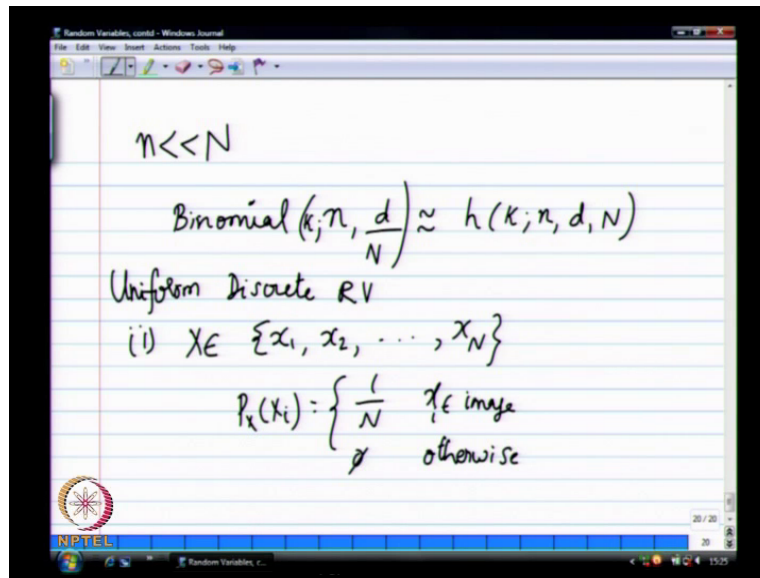 Random Variables, contd - Windows Journal
File Edit View Insert Actions Tools Help
n<<N
Binomial (k; n, d/N) ≈ h(k; n, d, N)
Uniform Discrete RV
(i) X∈ {x₁, x₂, ..., x_N}
Pₓ(xᵢ) = { 1/N xᵢ∈ image
0 otherwise
20 / 20
20
NPTEL
Random Variables, c...
15:25